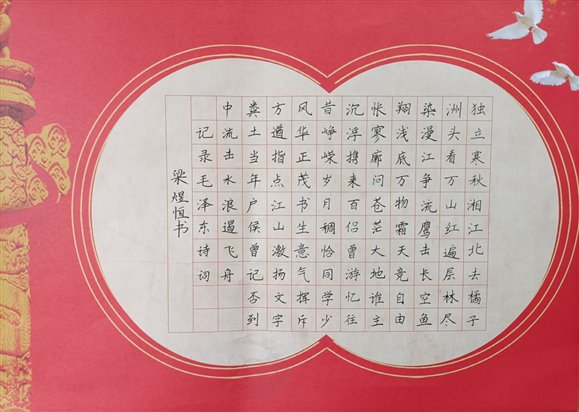 独立寒秋湘江北去橘子
洲头看万山红遍层林尽
染漫江争流鹰击长空鱼
翔浅底万物霜天竞自由
怅寥廓问苍茫大地谁主
沉浮携来百侣曾游忆往
昔峥嵘岁月稠恰同学少
风华正茂书生意气挥斥
方遒指点江山激扬文字
粪土当年户侯曾记否到
中流击水浪遏飞舟
记录毛泽东诗词
梁煜恒书